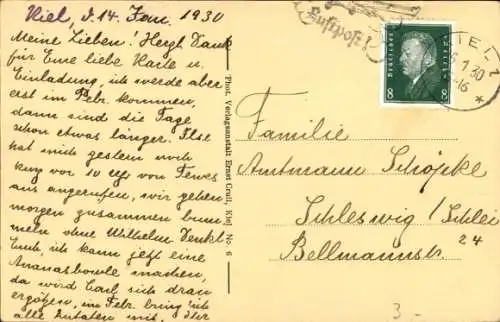 Kiel, d. 14. Jan. 1930
Meine Lieben! Herzl. Dank
für Eure liebe Karte u.
Einladung, ich werde aber
erst im Febr. kommen,
dann sind die Tage
schon etwas länger. Else
hat mich gestern
vor 10 Uhr von
aus angerufen, wir gehen
morgen zusammen bum-
meln ohne Wilhelm. Denkt
Euch, ich kann jetzt eine
Ananasbowle machen,
da wird Carl sich dran
ergötzen, im Febr. bring ich
alle Zutaten mit.
Phot. Verlagsanstalt Ernst Crull, Kiel No. 6
Luftpost!
Deutsches Reich
8 8
1.30
Familie
Amtmann Schöpke
Schleswig / Schlei
Bellmannstr. 24
3 -